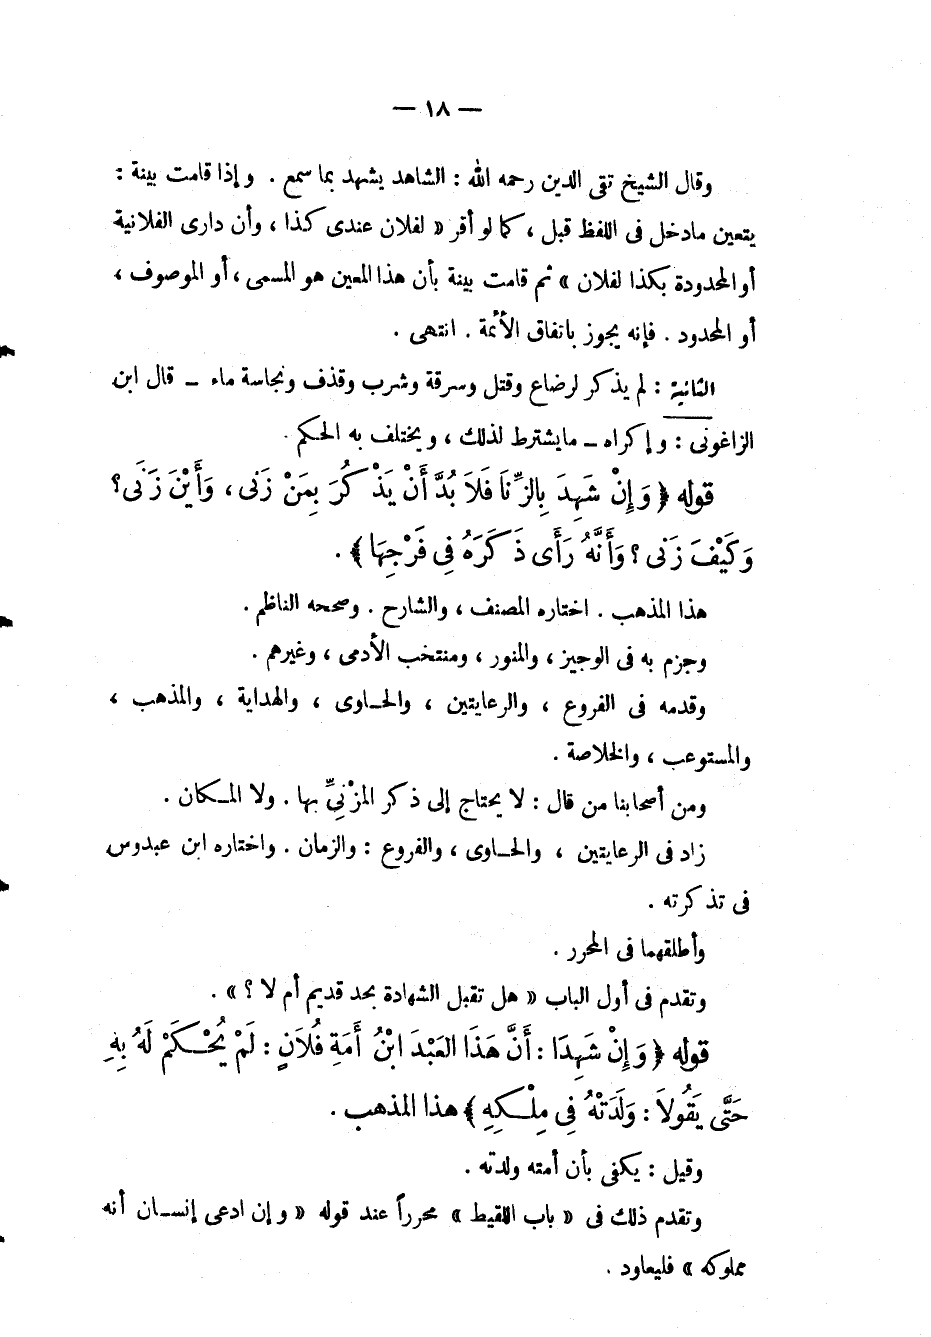 — ١٨ —
وقال الشيخ تقى الدين رحمه الله : الشاهد يشهد بما سمع . وإذا قامت بينة :
يتعين مادخل فى اللفظ قبل ، كما لو أقر « لفلان عندى كذا ، وأن دارى الفلانية
أو المحدودة بكذا لفلان » ثم قامت بينة بأن هذا المعين هو المسمى ، أو الموصوف ،
أو المحدود . فإنه يجوز باتفاق الأئمة . انتهى .
الثانية : لم يذكر لرضاع وقتل وسرقة وشرب وقذف ونجاسة ماء – قال ابن
الزاغونى : وإكراه – مايشترط لذلك ، ويختلف به الحكم .
قوله ﴿ وَإِنْ شَهِدَ بِالزِّنَا فَلَا بُدَّ أَنْ يَذْكُرَ بِمَنْ زَنَى ، وَأَيْنَ زَنَى ؟
وَكَيْفَ زَنَى ؟ وَأَنَّهُ رَأَى ذَكَرَهُ فِي فَرْجِهَا ﴾ .
هذا المذهب . اختاره المصنف ، والشارح . وصححه الناظم .
وجزم به فى الوجيز ، والمنور ، ومنتخب الأدمى ، وغيرهم .
وقدمه فى الفروع ، والرعايتين ، والحاوى ، والهداية ، والمذهب ،
والمستوعب ، والخلاصة .
ومن أصحابنا من قال : لا يحتاج إلى ذكر المزْنِيِّ بها . ولا المكان .
زاد فى الرعايتين ، والحاوى ، والفروع : والزمان . واختاره ابن عبدوس
فى تذكرته .
وأطلقهما فى المحرر .
وتقدم فى أول الباب « هل تقبل الشهادة بحد قديم أم لا ؟ » .
قوله ﴿ وَإِنْ شَهِدَا : أَنَّ هَذَا العَبْدَ ابْنُ أَمَةِ فُلَانٍ : لَمْ يُحْكَمْ لَهُ بِهِ
حَتَّى يَقُولَا : وَلَدَتْهُ فِي مِلْكِهِ ﴾ هذا المذهب .
وقيل : يكفى بأن أمته ولدته .
وتقدم ذلك فى « باب اللقيط » محرراً عند قوله « وإن ادعى إنسان أنه
مملوكه » فليعاود .